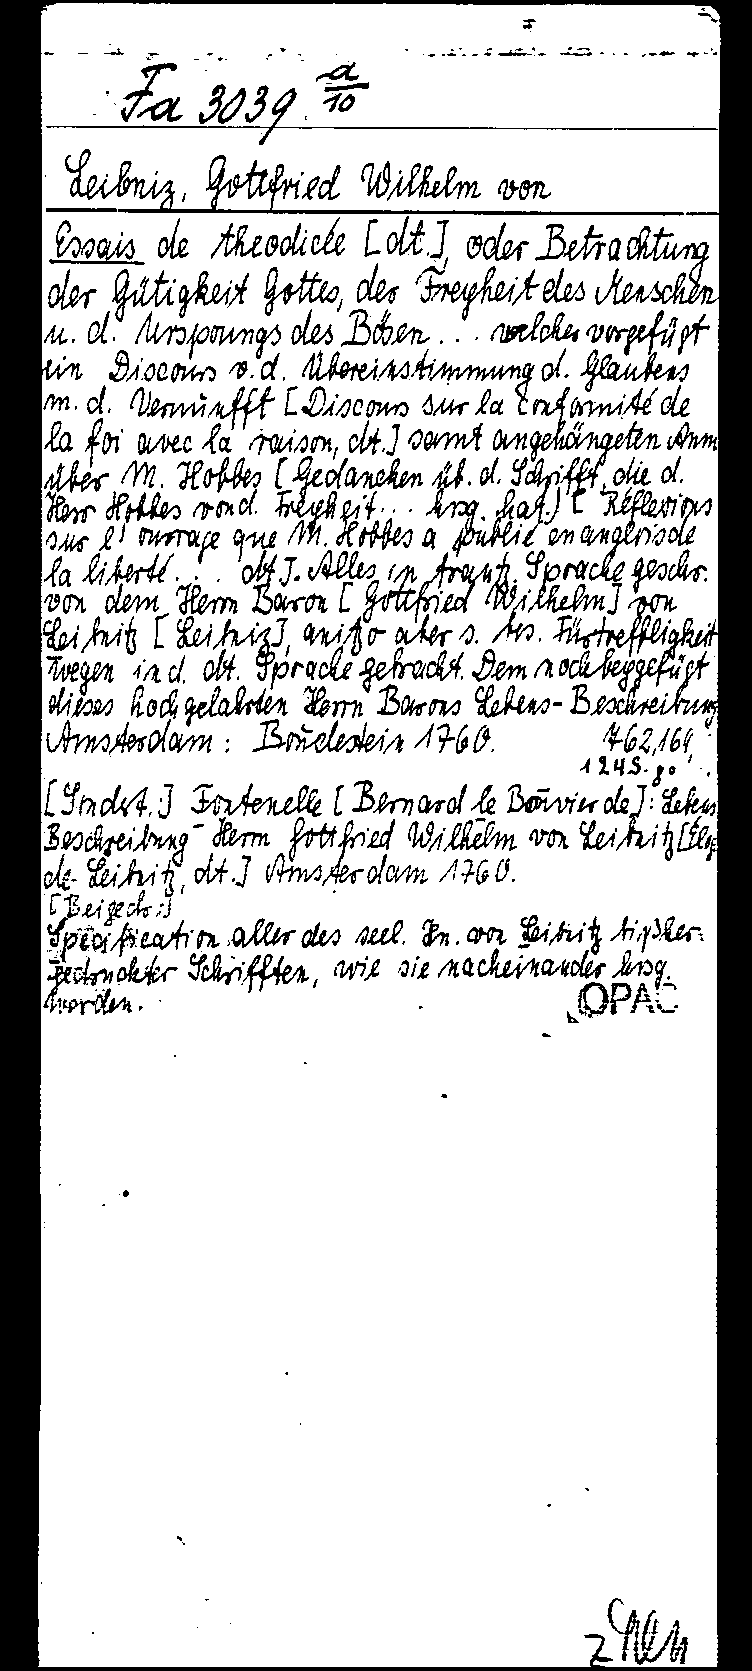 Fa 3039 a/10
Leibniz, Gottfried Wilhelm von
Essais de theodicée [dt.], oder Betrachtung
der Gütigkeit Gottes, der Freyheit des Menschen
u. d. Ursprungs des Bösen... welcher vorgefügt
ein Discours v. d. Übereinstimmung d. Glaubens
m. d. Vernunfft [Discours sur la conformité de
la foi avec la raison, dt.] samt angehängeten Anm
über M. Hobbes [Gedancken üb. d. Schrifft, die d.
Herr Hobbes von d. Freyheit... hrsg. hat.] [Réflexions
sur l'ouvrage que M. Hobbes a publié en anglois de
la liberté... dt.]. Alles in frantz. Sprache geschr.
von dem Herrn Baron [Gottfried Wilhelm] von
Leibnitz [Leibniz], anitzo aber s. bes. Fürtreffligkeit
wegen in d. dt. Sprache gebracht. Dem noch beygefügt
dieses hochgelahrten Herrn Barons Lebens-Beschreibung
Amsterdam: Boudestein 1760. 762,164,
124 S. 8o
Fontenelle [Bernard le Bouvier de]: Lebens
Beschreibung Herrn Gottfried Wilhelm von Leibnitz [Elog
de Leibnitz, dt.] Amsterdam 1760.
[Beigedr.:]
Specification aller des seel. Hn. von Leibnitz bißher
gedruckter Schrifften, wie sie nacheinander hrsg.
worden.
OPAC